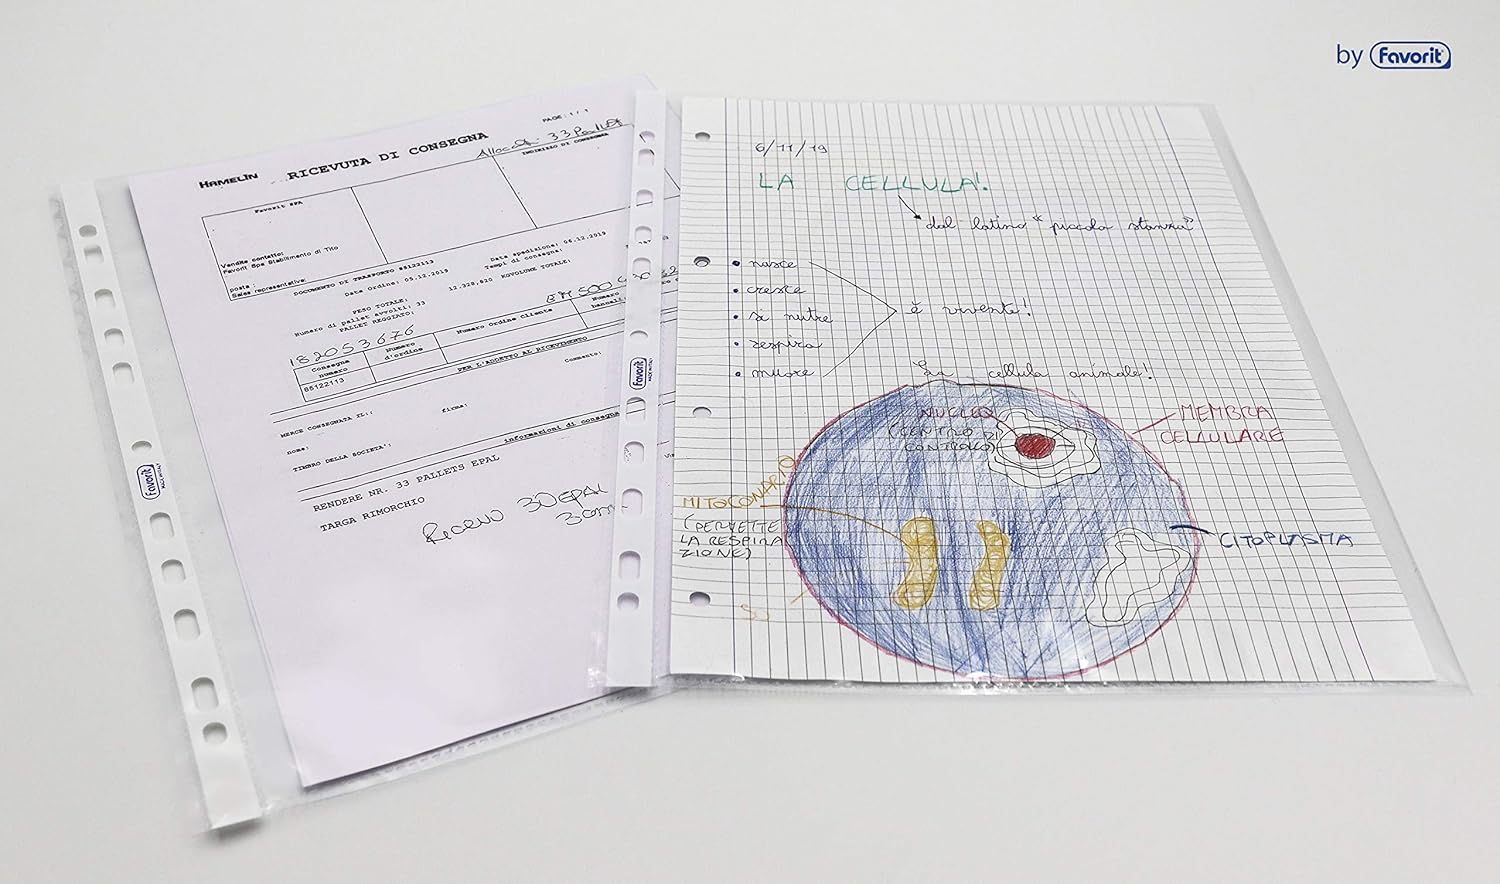 by Favorit
PAGE: 1 / 1
HAMELIN
RICEVUTA DI CONSEGNA
33
INDIRIZZO DI CONSEGNA
Favorit SPA
Vendite contatto:
Favorit Spa Stabilimento di Tito
posta:
Sales representative:
DOCUMENTO DI TRASPORTO 85122113
Data Ordine: 05.12.2019
Data spedizione: 06.12.2019
Tempi di consegna:
PESO TOTALE:
12.328,820 KGVOLUME TOTALE:
Numero di pallet avvolti: 33
PALLET REGGIATO:
182053676
Consegna numero
Numero d'ordine
Numero ordine Cliente
Numero
85122113
PER L'ADDETTO AL RICEVIMENTO
Commento:
MERCE CONSEGNATA IL:
firma:
nome:
TIMBRO DELLA SOCIETA':
informazioni di consegna
RENDERE NR. 33 PALLETS EPAL
TARGA RIMORCHIO
30 EPAL
Favorit
MADE IN ITALY
Favorit
MADE IN ITALY
6/11/19
LA CELLULA!
dal latino "piccola stanza"
• nasce
• cresce
• si nutre
• respira
• muore
è vivente!
La cellula animale!
NUCLEO
(CENTRO DI
CONTROLLO)
MEMBRA
CELLULARE
MITOCONDRIO
(PERMETTE
LA RESPIRA
ZIONE)
CITOPLASMA